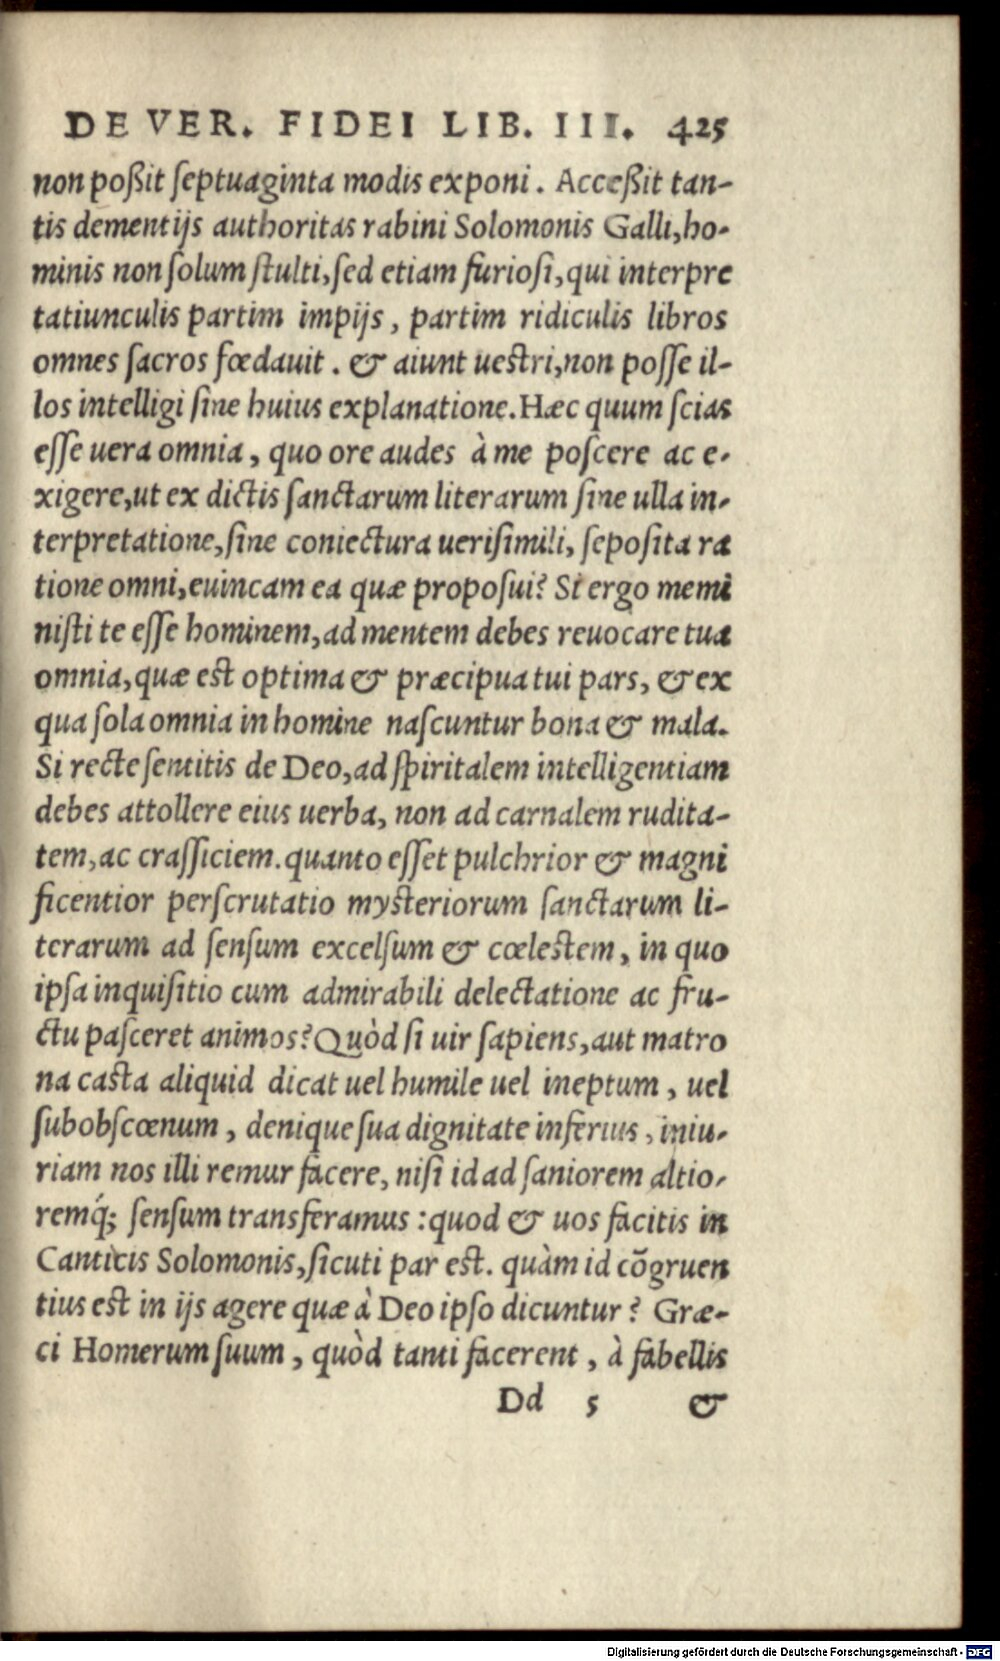 DE VER. FIDEI LIB. III. 425
non poßit septuaginta modis exponi. Acceßit tan-
tis dementijs authoritas rabini Solomonis Galli, ho-
minis non solum stulti, sed etiam furiosi, qui interpre
tatiunculis partim impijs, partim ridiculis libros
omnes sacros fœdauit. & aiunt uestri, non posse il-
los intelligi sine huius explanatione. Hæc quum scias
esse uera omnia, quo ore audes à me poscere ac e-
xigere, ut ex dictis sanctarum literarum sine ulla in-
terpretatione, sine coniectura uerisimili, seposita ra
tione omni, euincam ea quæ proposui? Si ergo memi
nisti te esse hominem, ad mentem debes reuocare tua
omnia, quæ est optima & præcipua tui pars, & ex
qua sola omnia in homine nascuntur bona & mala.
Si recte sentitis de Deo, ad spiritalem intelligentiam
debes attollere eius uerba, non ad carnalem rudita-
tem, ac crassiciem. quanto esset pulchrior & magni
ficentior perscrutatio mysteriorum sanctarum li-
terarum ad sensum excelsum & cœlestem, in quo
ipsa inquisitio cum admirabili delectatione ac fru-
ctu pasceret animos? Quòd si uir sapiens, aut matro
na casta aliquid dicat uel humile uel ineptum, uel
subobscœnum, denique sua dignitate inferius, iniu-
riam nos illi remur facere, nisi id ad saniorem altio-
remq́; sensum transferamus: quod & uos facitis in
Canticis Solomonis, sicuti par est. quàm id cõgruen
tius est in ijs agere quæ à Deo ipso dicuntur? Græ-
ci Homerum suum, quòd tanti facerent, à fabellis
Dd 5 &
Digitalisierung gefördert durch die Deutsche Forschungsgemeinschaft - DFG